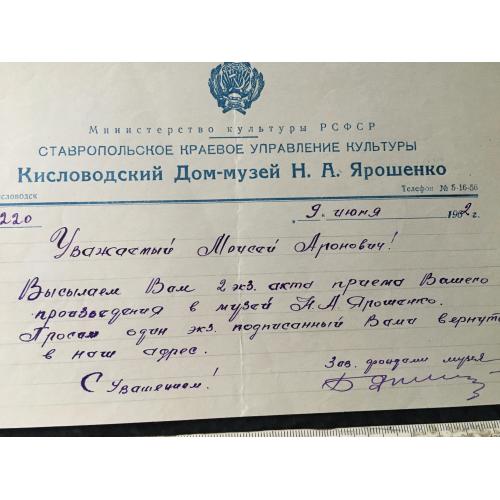 Министерство культуры РСФСР
СТАВРОПОЛЬСКОЕ КРАЕВОЕ УПРАВЛЕНИЕ КУЛЬТУРЫ
Кисловодский Дом-музей Н. А. Ярошенко
исловодск Телефон № 5-16-56
220 „ 9 „ июня 1962 г.
Уважаемый Моисей Аронович!
Высылаем Вам 2 экз. акта приема Вашего
произведения в музей Н.А Ярошенко.
Просим один экз. подписанный Вами вернуть
в наш адрес.
Зав. фондами музея
С уважением!